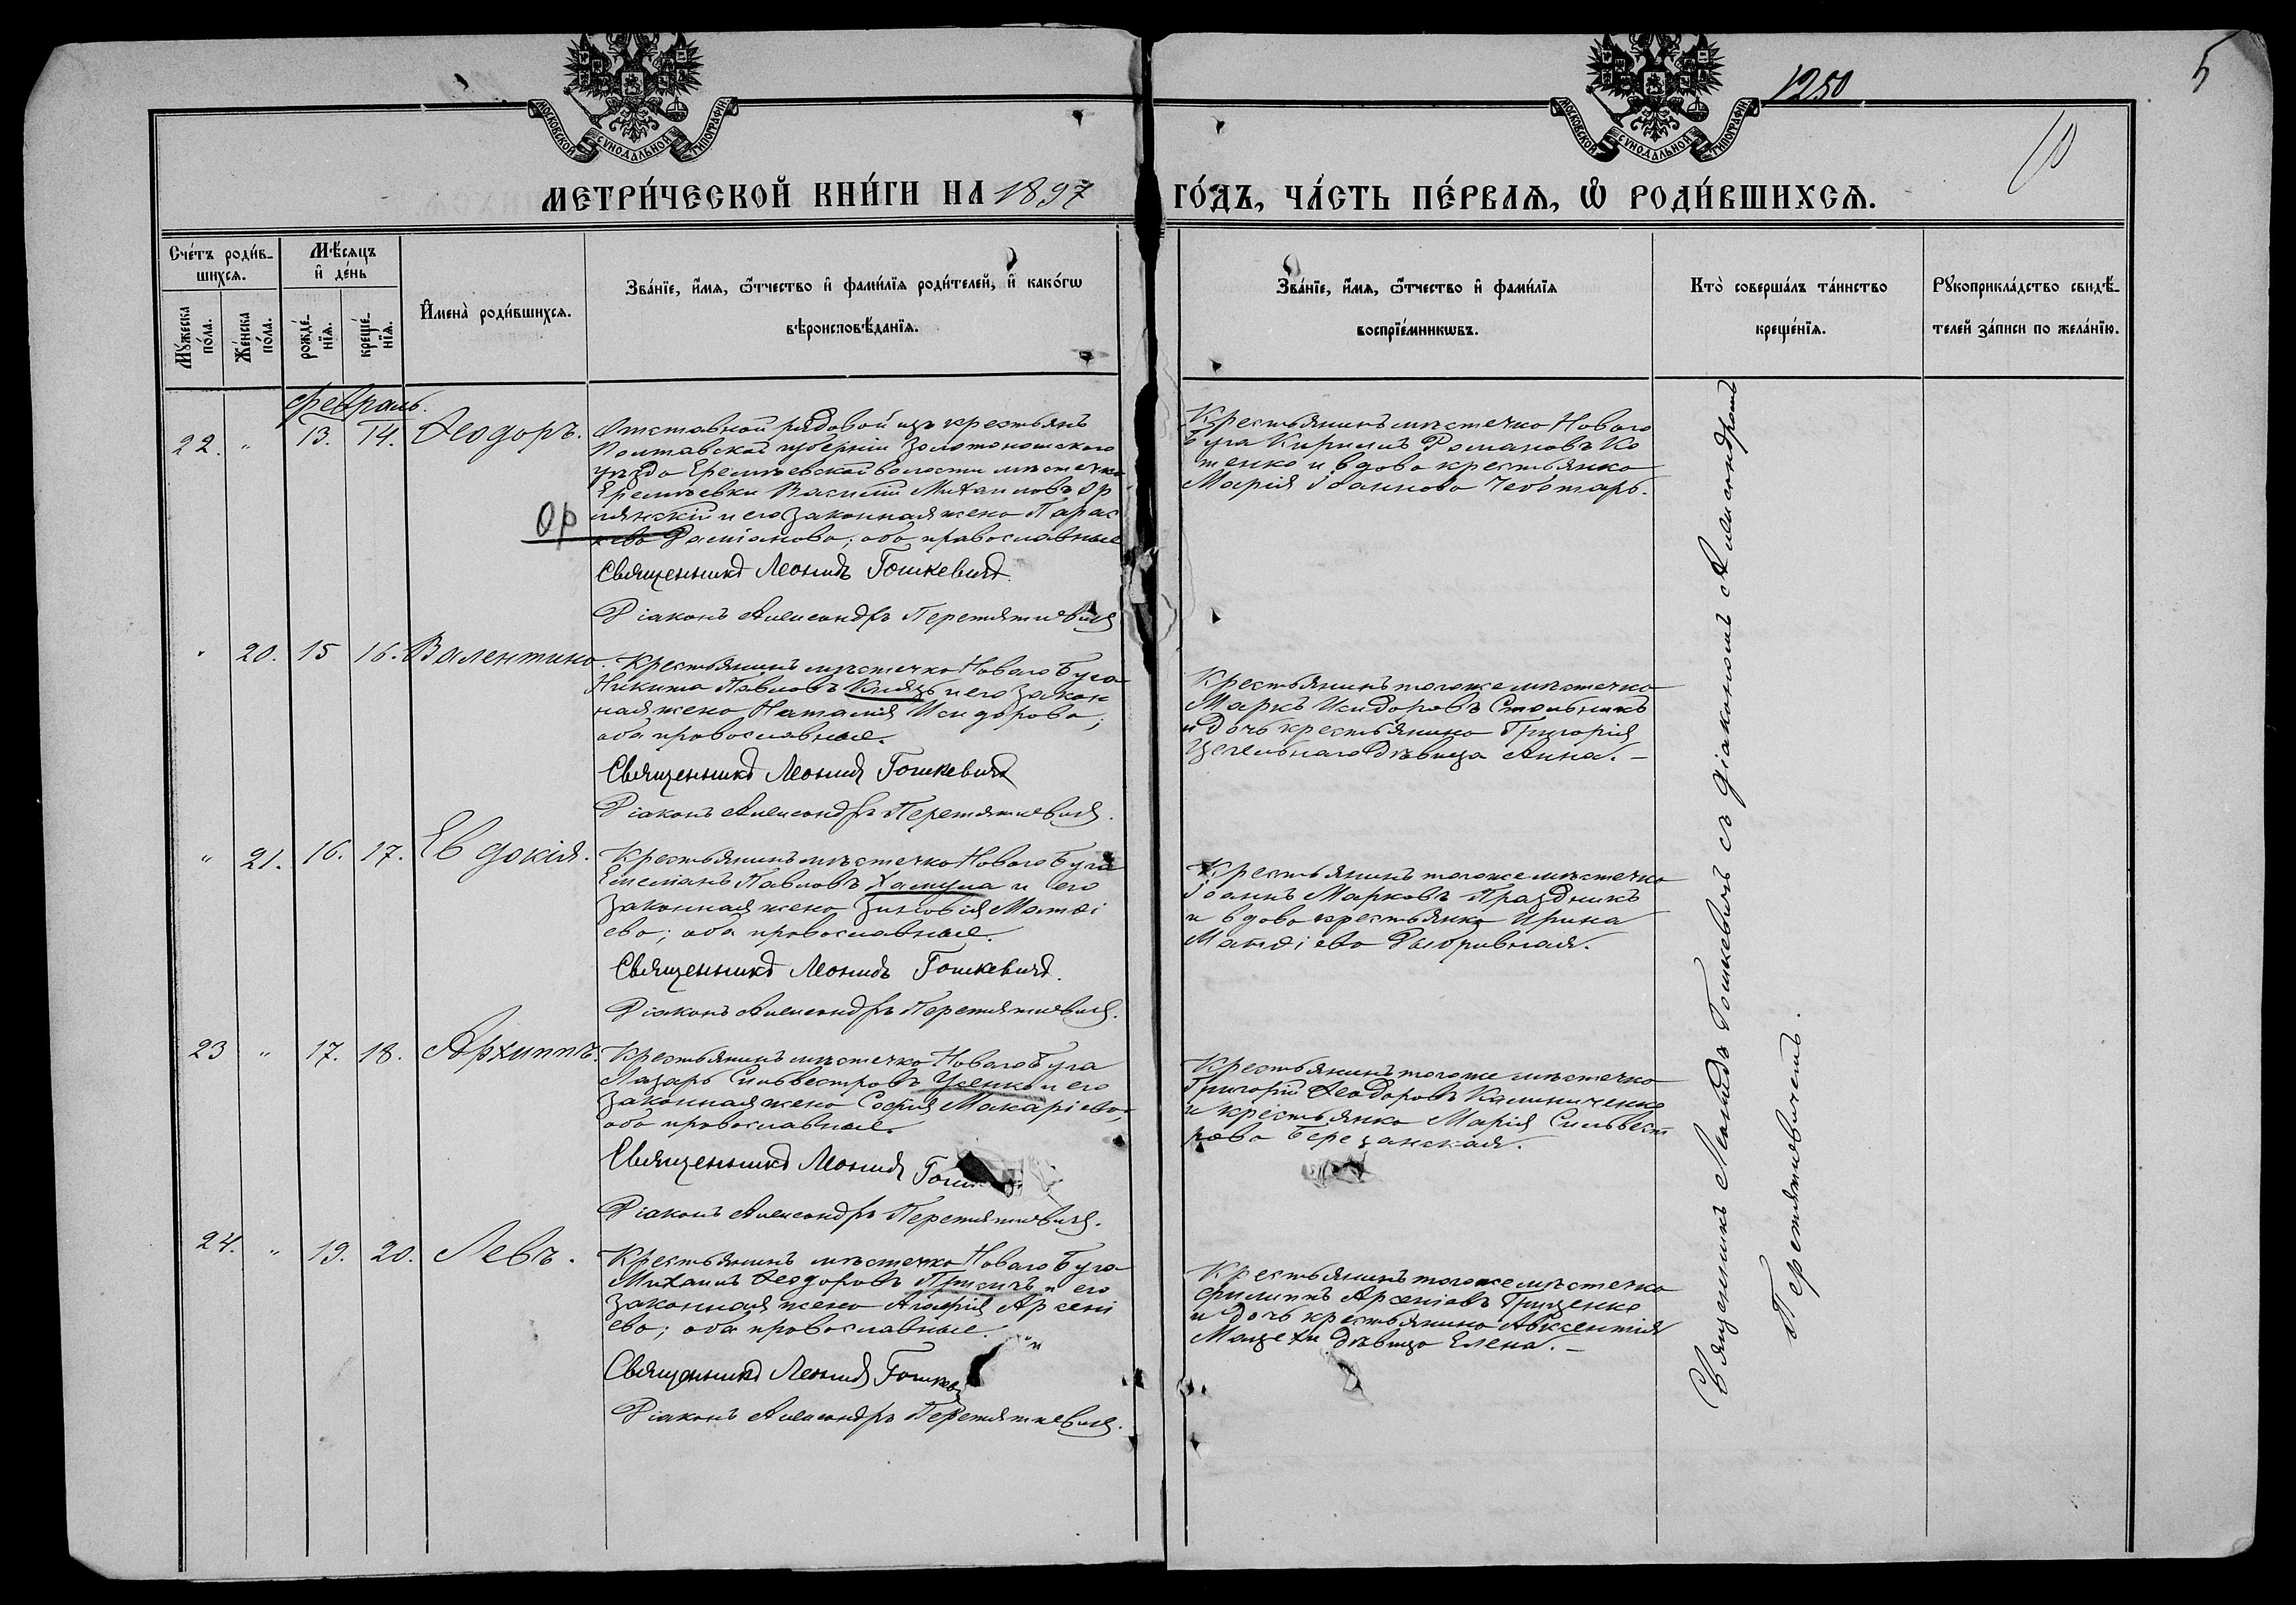 1250
5
МОСКОВСКОЙ СУНОДАЛЬНОЙ ТИПОГРАФІИ
МОСКОВСКОЙ СУНОДАЛЬНОЙ ТИПОГРАФІИ
МЕТРИ́ЧЕСКОЙ КНИ́ГИ НА 1897 ГО́ДЪ, ЧА́СТЬ ПЕ́РВАѦ, Ѽ РОДИ́ВШИХСѦ.
Сче́тъ роди́в-
шихсѧ.
Мѣ́сѧцъ
и҆ де́нь
Мꙋ́жеска по́ла.
Же́нска по́ла.
рожде́-
нїѧ.
креще́-
нїѧ.
И҆мена̀ роди́вшихсѧ.
Зва́нїе, и҆́мѧ, ѻ҆́тчество и҆ фами́лїѧ роди́телей, и҆ како́гѡ
вѣроисповѣ́данїѧ.
Зва́нїе, и҆́мѧ, ѻ҆́тчество и҆ фами́лїѧ
воспрїе́мникѡвъ.
Кто̀ соверша́лъ та́инство
креще́нїѧ.
Рꙋкоприкла́дство свидѣ́-
телей за́писи по жела́нїю.
Февраль.
22. " 13. 14. Ѳеодоръ.
Отставной рядовой изъ крестьянъ
Полтавской губерніи Золотоношскаго
уѣзда Еремѣевской волости мѣстечка
Еремѣевки Василій Михаиловъ Ор
лянскій и его законная жена Парас
кева Даміанова; оба православные
Ор
Священникъ Леонидъ Гошкевичъ
Діаконъ Александръ Перетятковичъ
Крестьянинъ мѣстечка Новаго
Буга Кириллъ Романовъ Ко
тенко и вдова крестьянка
Марія Іоаннова Чеботарь.
" 20. 15 16. Валентина.
Крестьянинъ мѣстечка Новаго Буга
Никита Павловъ Князь и его закон
ная жена Наталія Исидорова;
оба православные.
Священникъ Леонидъ Гошкевичъ
Діаконъ Александръ Перетятковичъ.
Крестьянинъ тогоже мѣстечка
Маркъ Исидоровъ Стольникъ
и дочь крестьянина Григорія
Цегельнаго дѣвица Анна. –
" 21. 16. 17. Евдокія.
Крестьянинъ мѣстечка Новаго Буга
Емеліанъ Павловъ Хамула и его
законная жена Зиновія Матѳі
ева; оба православные.
Священникъ Леонидъ Гошкевичъ.
Діаконъ Александръ Перетятковичъ.
Крестьянинъ тогоже мѣстечка
Іоаннъ Марковъ Праздникъ
и вдова крестьянка Ирина
Матѳіева
23 " 17. 18. Архиппъ.
Крестьянинъ мѣстечка Новаго Буга
Лазарь Сильвестровъ Усенко и его
законная жена Софія Макаріева;
оба православные.
Священникъ Леонидъ Гош
Діаконъ Александръ Перетятковичъ.
Крестьянинъ тогоже мѣстечка
Григорій Ѳеодоровъ Калиниченко
и крестьянка Марія Сильвест
рова Березанская.
24. " 19. 20. Левъ.
Крестьянинъ мѣстечка Новаго Буга
Михаилъ Ѳеодоровъ и его
законная жена Агафія Арсені
ева; оба православные.
Священникъ Леонидъ Гошкев
Діаконъ Александръ Перетятковичъ.
Крестьянинъ тогоже мѣстечка
Филиппъ Арсеніевъ Гриценко
и дочь крестьянина Авксентія
Мацехи дѣвица Елена. –
Священникъ Леонидъ Гошкевичъ съ діакономъ Александромъ
Перетятковичемъ.